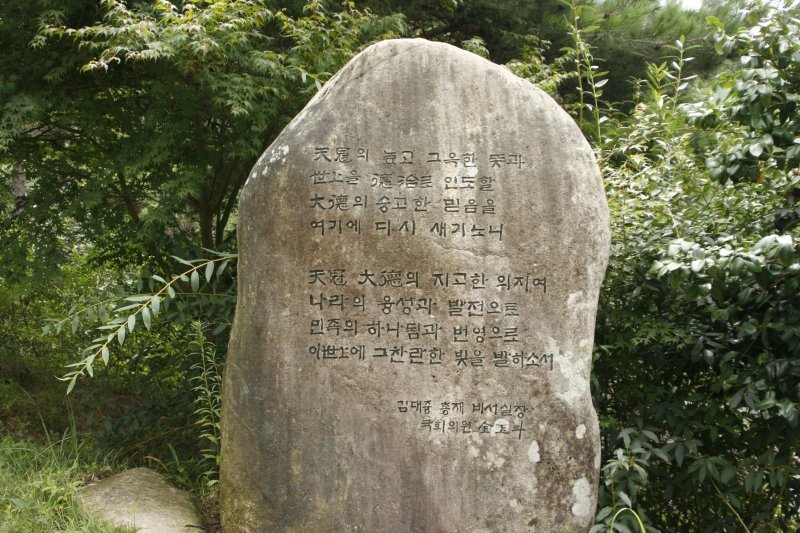 天冠의 높고 그윽한 뜻과
世上을 德治로 인도할
大德의 숭고한 믿음을
여기에 다시 새기노니
天冠 大德의 지고한 의지여
나라의 융성과 발전으로
민족의 하나됨과 번영으로
이世上에 그찬란한 빛을 발하소서
김대중 총재 비서실장
국회의원 金玉斗